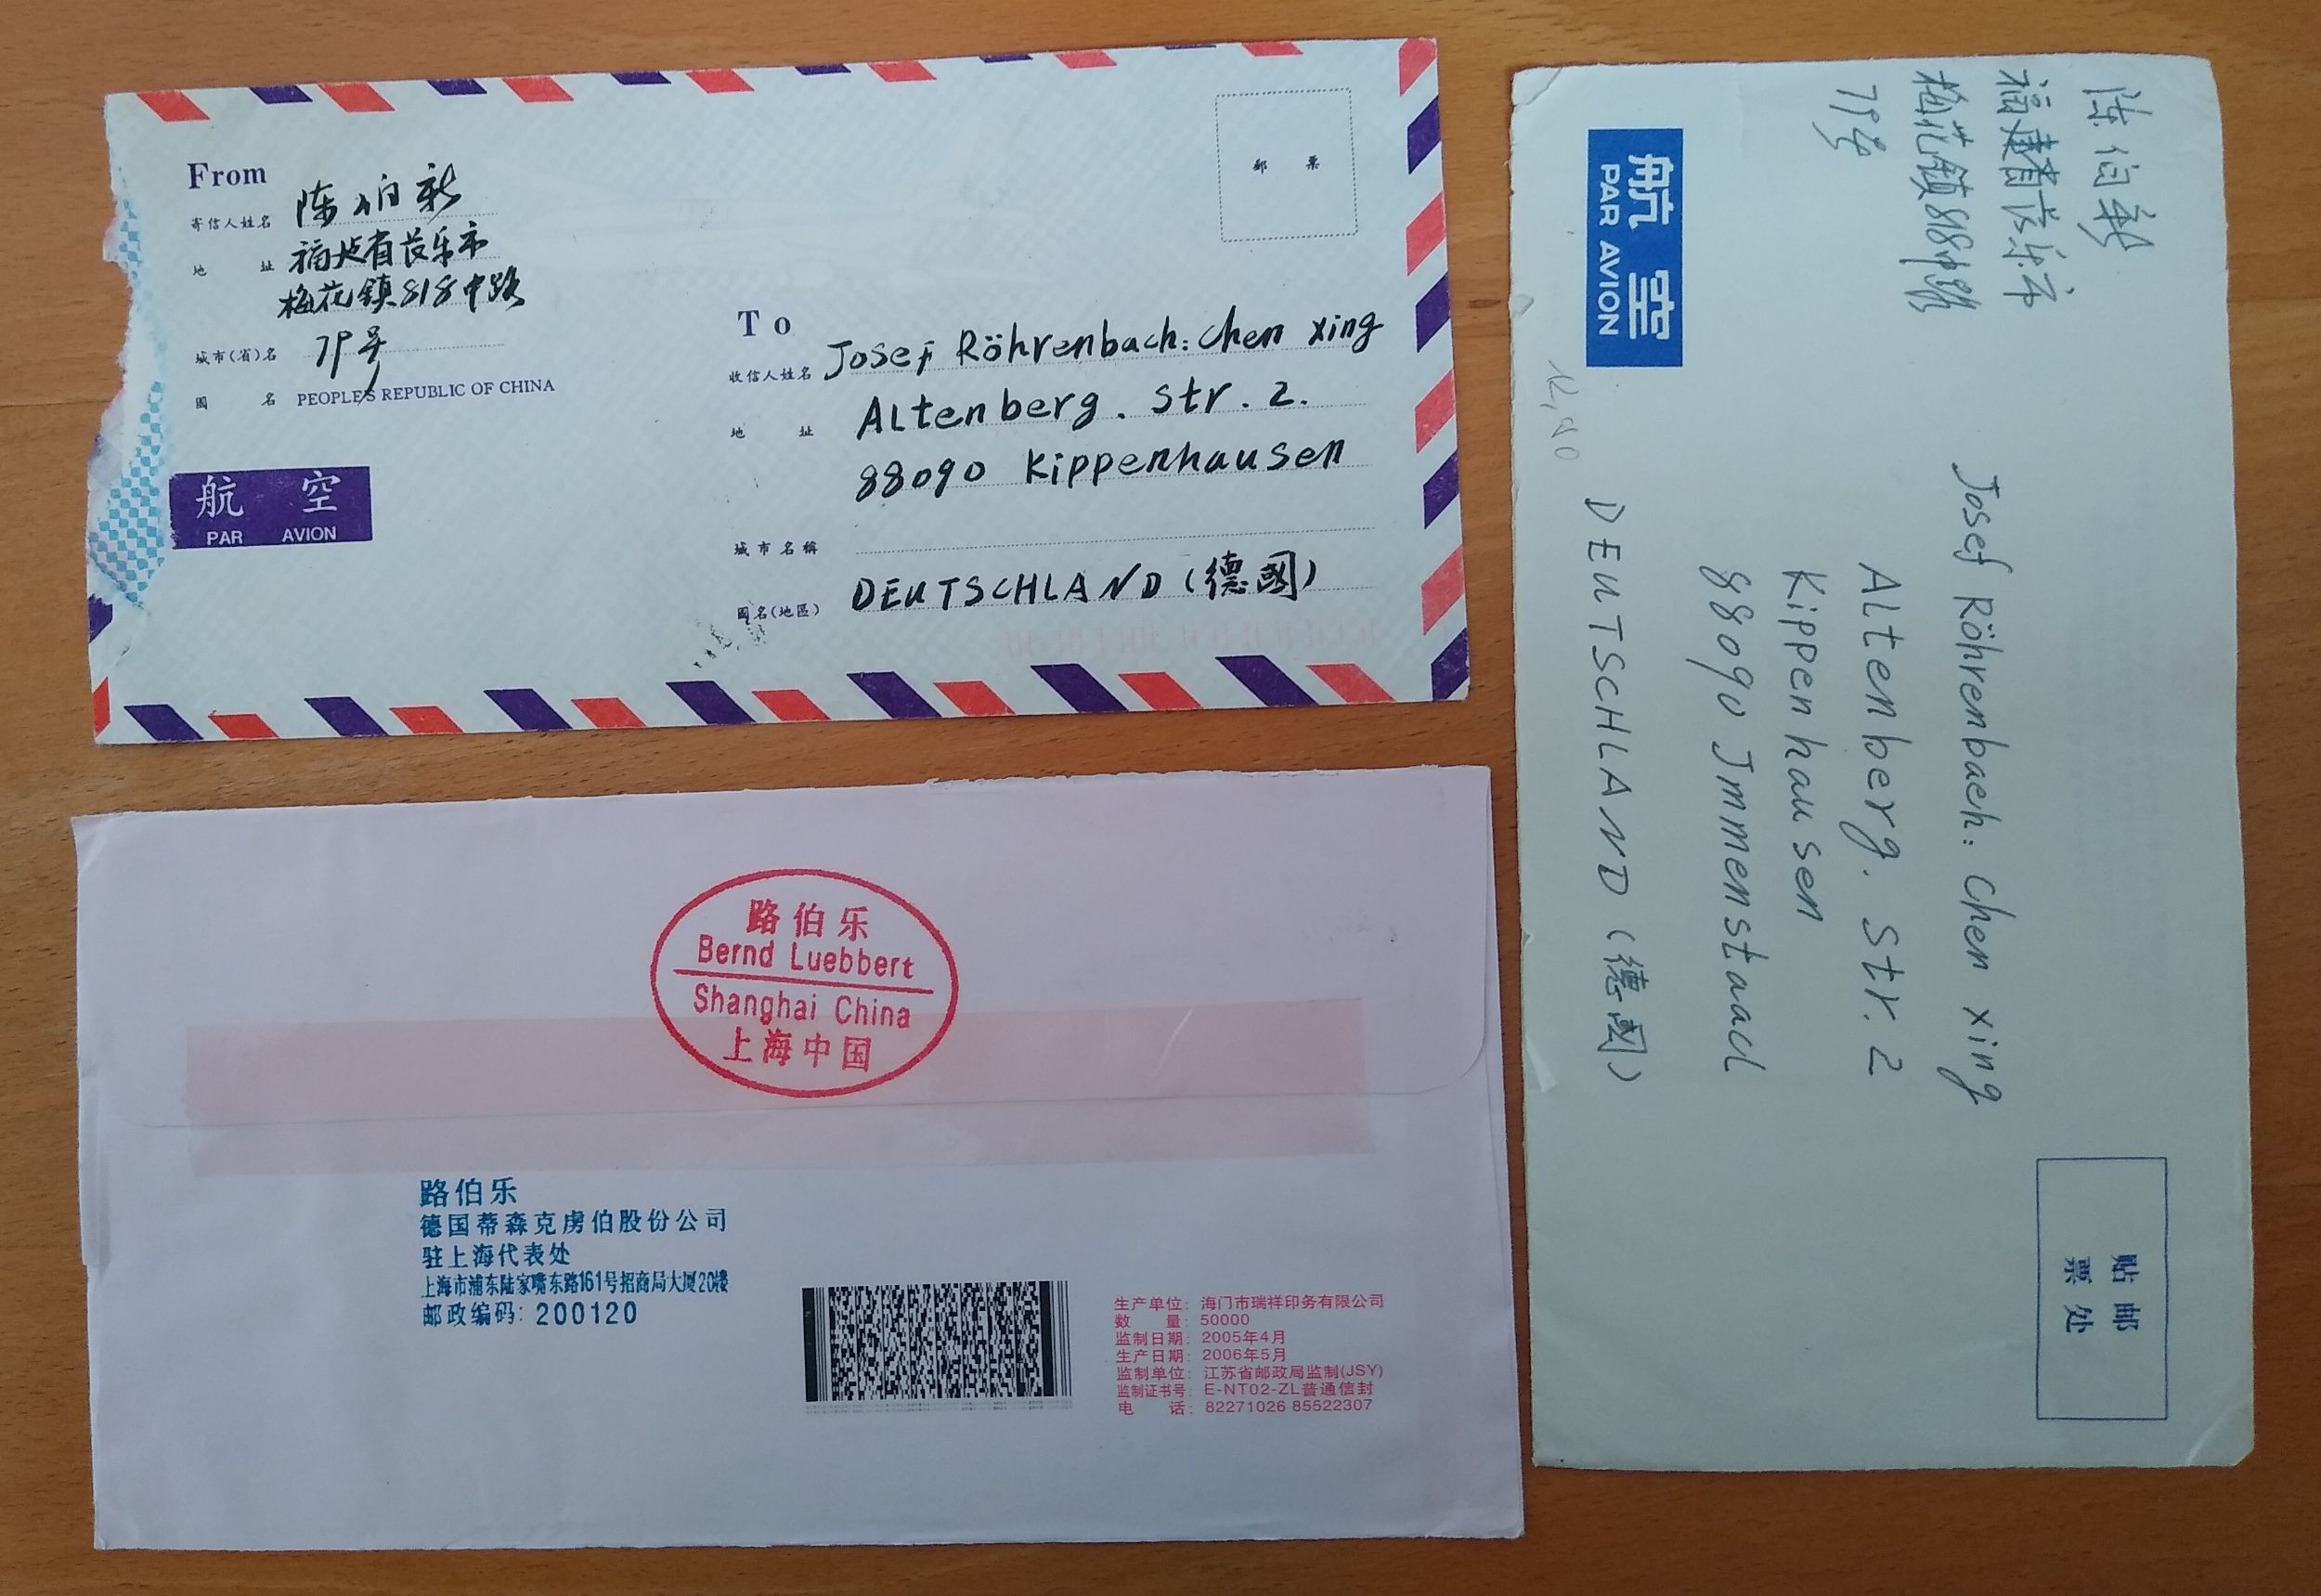 From
寄信人姓名 陈伯新
地 址 福建省长乐市
梅花镇818中路
城市(省)名 79号
國 名 PEOPLE'S REPUBLIC OF CHINA
航 空
PAR AVION
郵 票
To
收信人姓名 Josef Röhrenbach: Chen Xing
地 址 Altenberg. Str. 2.
88090 Kippenhausen
城市名稱
國名(地區) DEUTSCHLAND (德國)
路伯乐
Bernd Luebbert
Shanghai China
上海中国
路伯乐
德国蒂森克虏伯股份公司
驻上海代表处
上海市浦东陆家嘴东路161号招商局大厦20楼
邮政编码: 200120
生产单位: 海门市瑞祥印务有限公司
数 量: 50000
监制日期: 2005年4月
生产日期: 2006年5月
监制单位: 江苏省邮政局监制(JSY)
监制证书号: E-NT02-ZL普通信封
电 话: 82271026 85522307
陈伯新
福建省长乐市
梅花镇818中路
79号
航空
PAR AVION
Josef Röhrenbach: Chen Xing
Altenberg. Str. 2
Kippenhausen
88090 Immenstaad
DEUTSCHLAND (德國)
贴邮
票处